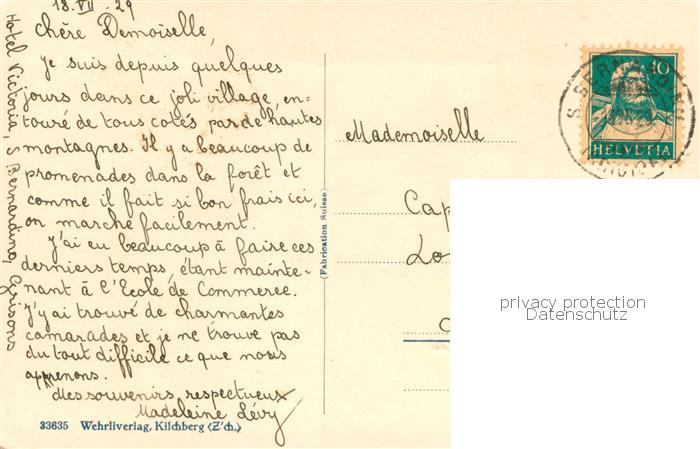 18.VII.29
Chère Demoiselle,
Je suis depuis quelques
jours dans ce joli village, en-
touré de tous cotés par de hautes
montagnes. Il y a beaucoup de
promenades dans la forêt et
comme il fait si bon frais ici,
on marche facilement.
J'ai eu beaucoup à faire ces
derniers temps, étant mainte-
nant à l'Ecole de Commerce.
J'y ai trouvé de charmantes
camarades et je ne trouve pas
du tout difficile ce que nous
apprenons.
Mes souvenirs respectueux
Madeleine Lévy
Hotel Victoria, S. Bernardino, Grisons
33635 Wehrliverlag, Kilchberg (Z'ch.)
(Fabrication Suisse)
Mademoiselle
Cap
Lo
10
HELVETIA
privacy protection
Datenschutz